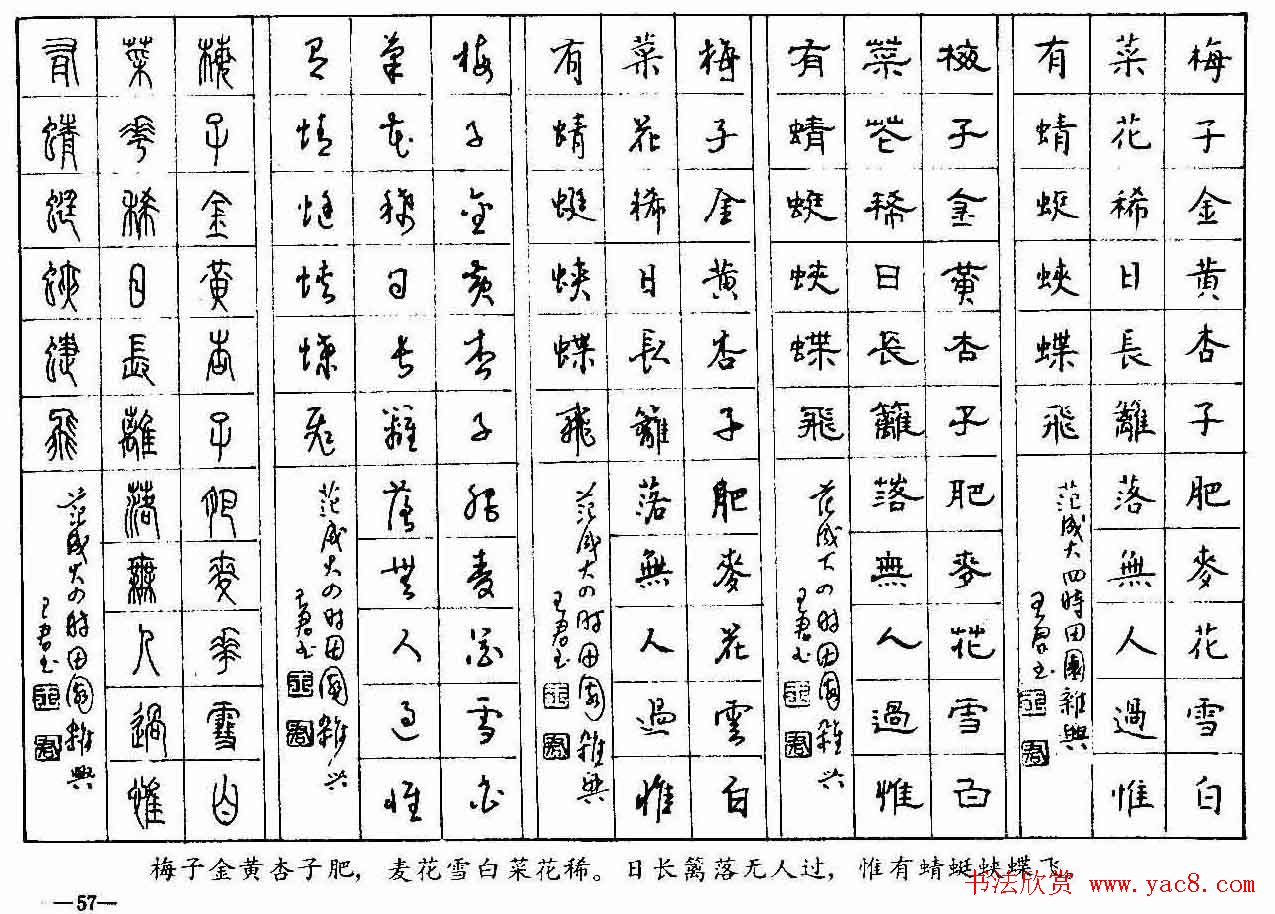 梅子金黄杏子肥麥花雪白
菜花稀日長籬落無人過惟
有蜻蜓蛺蝶飛
范成大四時田園雜興
王君书
梅子金黄杏子肥麥花雪白
菜花稀日長籬落無人過惟
有蜻蜓蛺蝶飛
范成大四时田園雜兴
梅子金黄杏子肥麥花雪白
菜花稀日長籬落無人過惟
有蜻蜓蛺蝶飛
范成大四时田園雜興
梅子金黄杏子肥麥花雪白
菜花稀日長籬落無人過惟
有蜻蜓蛺蝶飛
范成大四时田園雜兴
梅子金黄杏子肥麥華雪白
菜華稀日長離落無人過惟
有蜻蜓蛺蝶飛
范成大四时田園雜興
梅子金黄杏子肥，麦花雪白菜花稀。日长篱落无人过，惟有蜻蜓蛱蝶飞。
—57—
书法欣赏 www.yac8.com